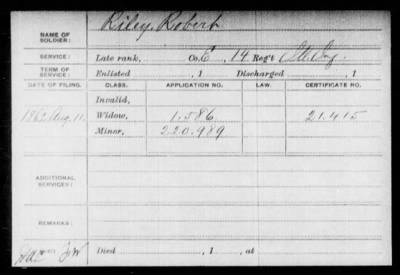 NAME OF SOLDIER: Riley, Robert
SERVICE: Late rank, Co. E, 14 Reg't Inf.
TERM OF SERVICE: Enlisted , 1 Discharged , 1
DATE OF FILING. CLASS. APPLICATION NO. LAW. CERTIFICATE NO.
Invalid,
1862 Aug. 11, Widow, 1.586 21.415
Minor, 220.989
ADDITIONAL SERVICES:
REMARKS:
Died , 1 , at